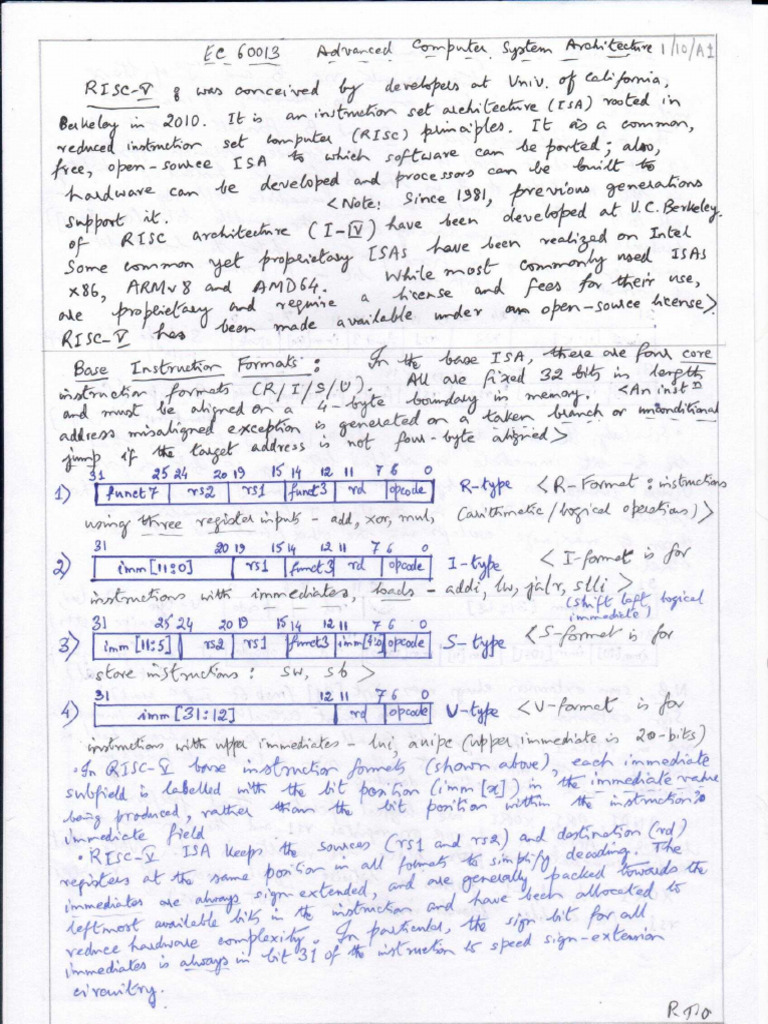 EC 60013 Advanced Computer System Architecture 1/10/A1
RISC-V : was conceived by developers at Univ. of California,
Berkeley in 2010. It is an instruction set architecture (ISA) rooted in
reduced instruction set computer (RISC) principles. It is a common,
free, open-source ISA to which software can be ported; also,
hardware can be developed and processors can be built to
support it. <Note: Since 1981, previous generations
of RISC architecture (I-IV) have been developed at U.C. Berkeley.
Some common yet proprietary ISAs have been realized on Intel
x86, ARMv8 and AMD64. While most commonly used ISAs
are proprietary and require a license and fees for their use,
RISC-V has been made available under an open-source license>.
Base Instruction Formats : In the base ISA, there are four core
instruction formats (R/I/S/U). All are fixed 32 bits in length
and must be aligned on a 4-byte boundary in memory. <An instⁿ
address misaligned exception is generated on a taken branch or unconditional
jump if the target address is not four-byte aligned>
31 25 24 20 19 15 14 12 11 7 6 0
1) funct7 rs2 rs1 funct3 rd opcode R-type <R-Format: instructions
using three register inputs - add, xor, mul, (arithmetic/logical operations)>
31 20 19 15 14 12 11 7 6 0
2) imm[11:0] rs1 funct3 rd opcode I-type <I-format is for
instructions with immediates, loads - addi, lw, jalr, slli>
(shift left logical
immediate)
31 25 24 20 19 15 14 12 11 7 6 0
3) imm[11:5] rs2 rs1 funct3 imm[4:0] opcode S-type <S-format is for
store instructions : sw, sb>
31 12 11 7 6 0
4) imm[31:12] rd opcode U-type <U-format is for
instructions with upper immediates - lui, auipc (upper immediate is 20-bits)
• In RISC-V base instruction formats (shown above), each immediate
subfield is labelled with the bit position (imm[x]) in the immediate value
being produced, rather than the bit position within the instruction's
immediate field
• RISC-V ISA keeps the sources (rs1 and rs2) and destination (rd)
registers at the same position in all formats to simplify decoding. The
immediates are always sign-extended, and are generally packed towards the
leftmost available bits in the instruction and have been allocated to
reduce hardware complexity. In particular, the sign bit for all
immediates is always in bit 31 of the instruction to speed sign-extension
circuitry.
P.T.O